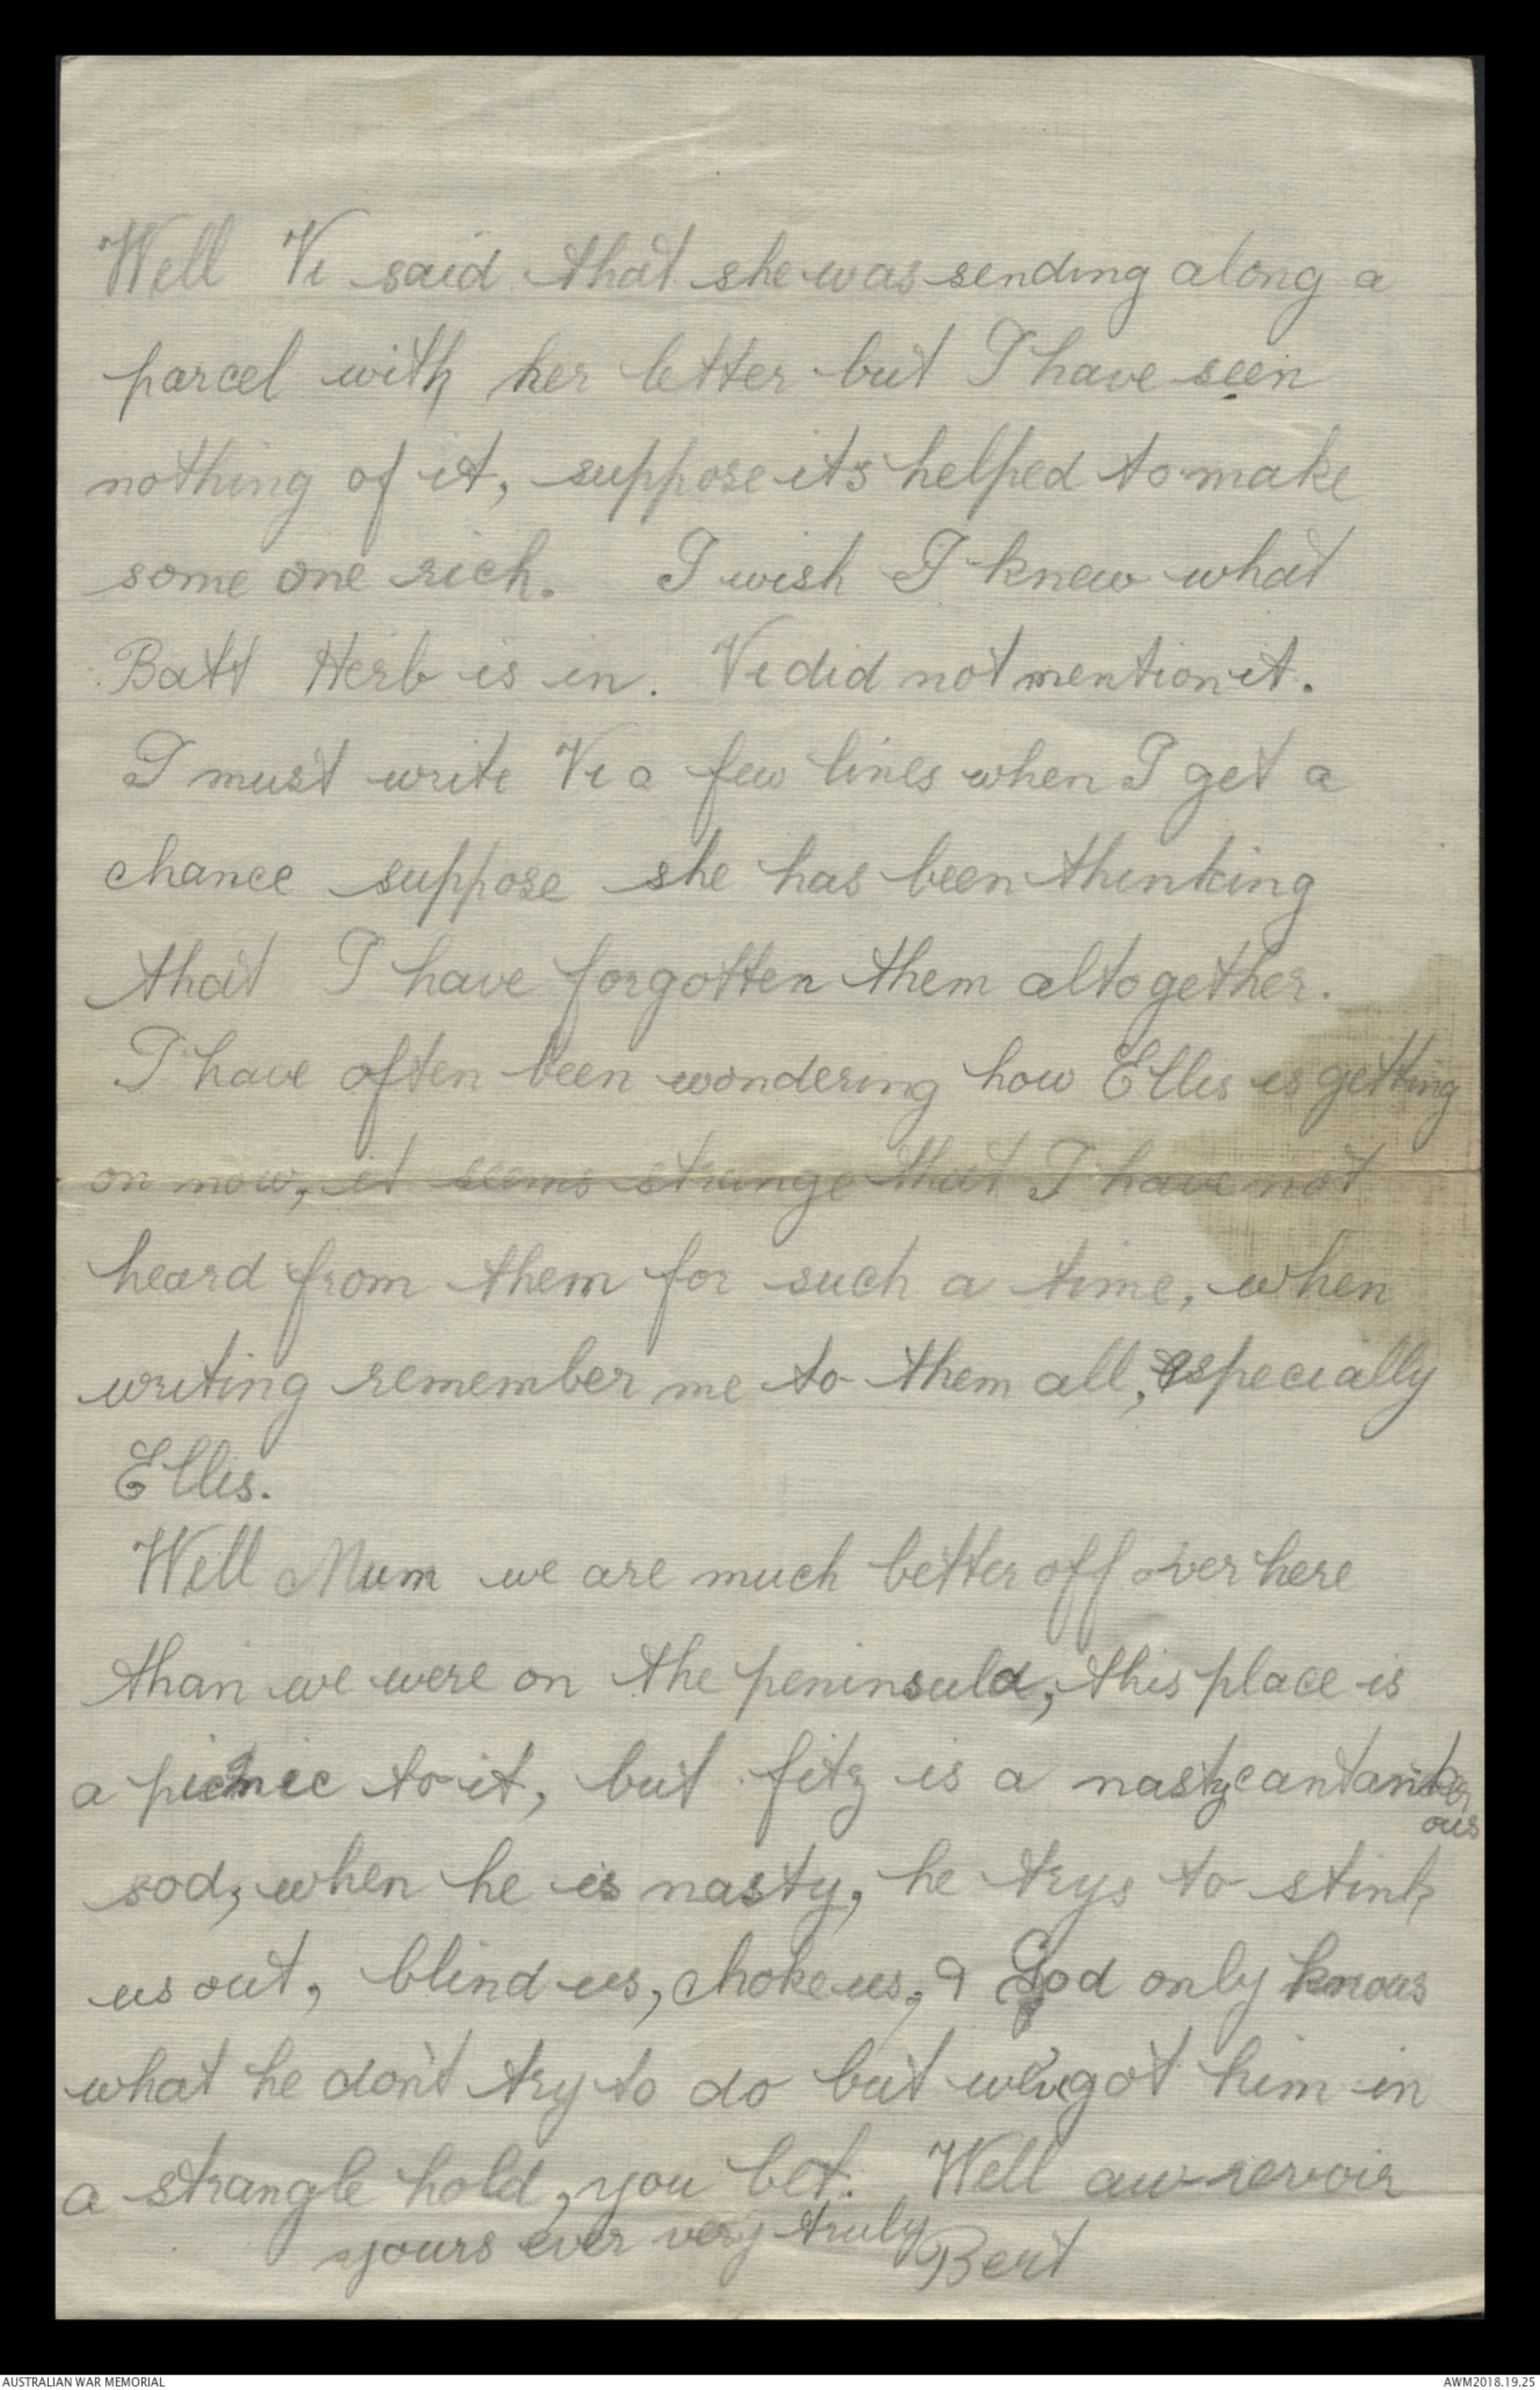 Well Vi said that she was sending along a
parcel with her letter but I have seen
nothing of it, suppose its helped to make
some one rich. I wish I knew what
Batt Herb is in. Vi did not mention it.
I must write Vi a few lines when I get a
chance suppose she has been thinking
that I have forgotten them altogether.
I have often been wondering how Ellis is getting
on now, it seems strange that I have not
heard from them for such a time, when
writing remember me to them all, especially
Ellis.
Well Mum we are much better off over here
than we were on the peninsula, this place is
a picnic to it, but fitz is a nasty cantanker
ous
sod, when he is nasty, he trys to stink
us out, blind us, choke us, & God only knows
what he don't try to do but we've got him in
a strangle hold, you bet. Well au-revoir
yours ever very truly Bert
AUSTRALIAN WAR MEMORIAL
AWM2018.19.25